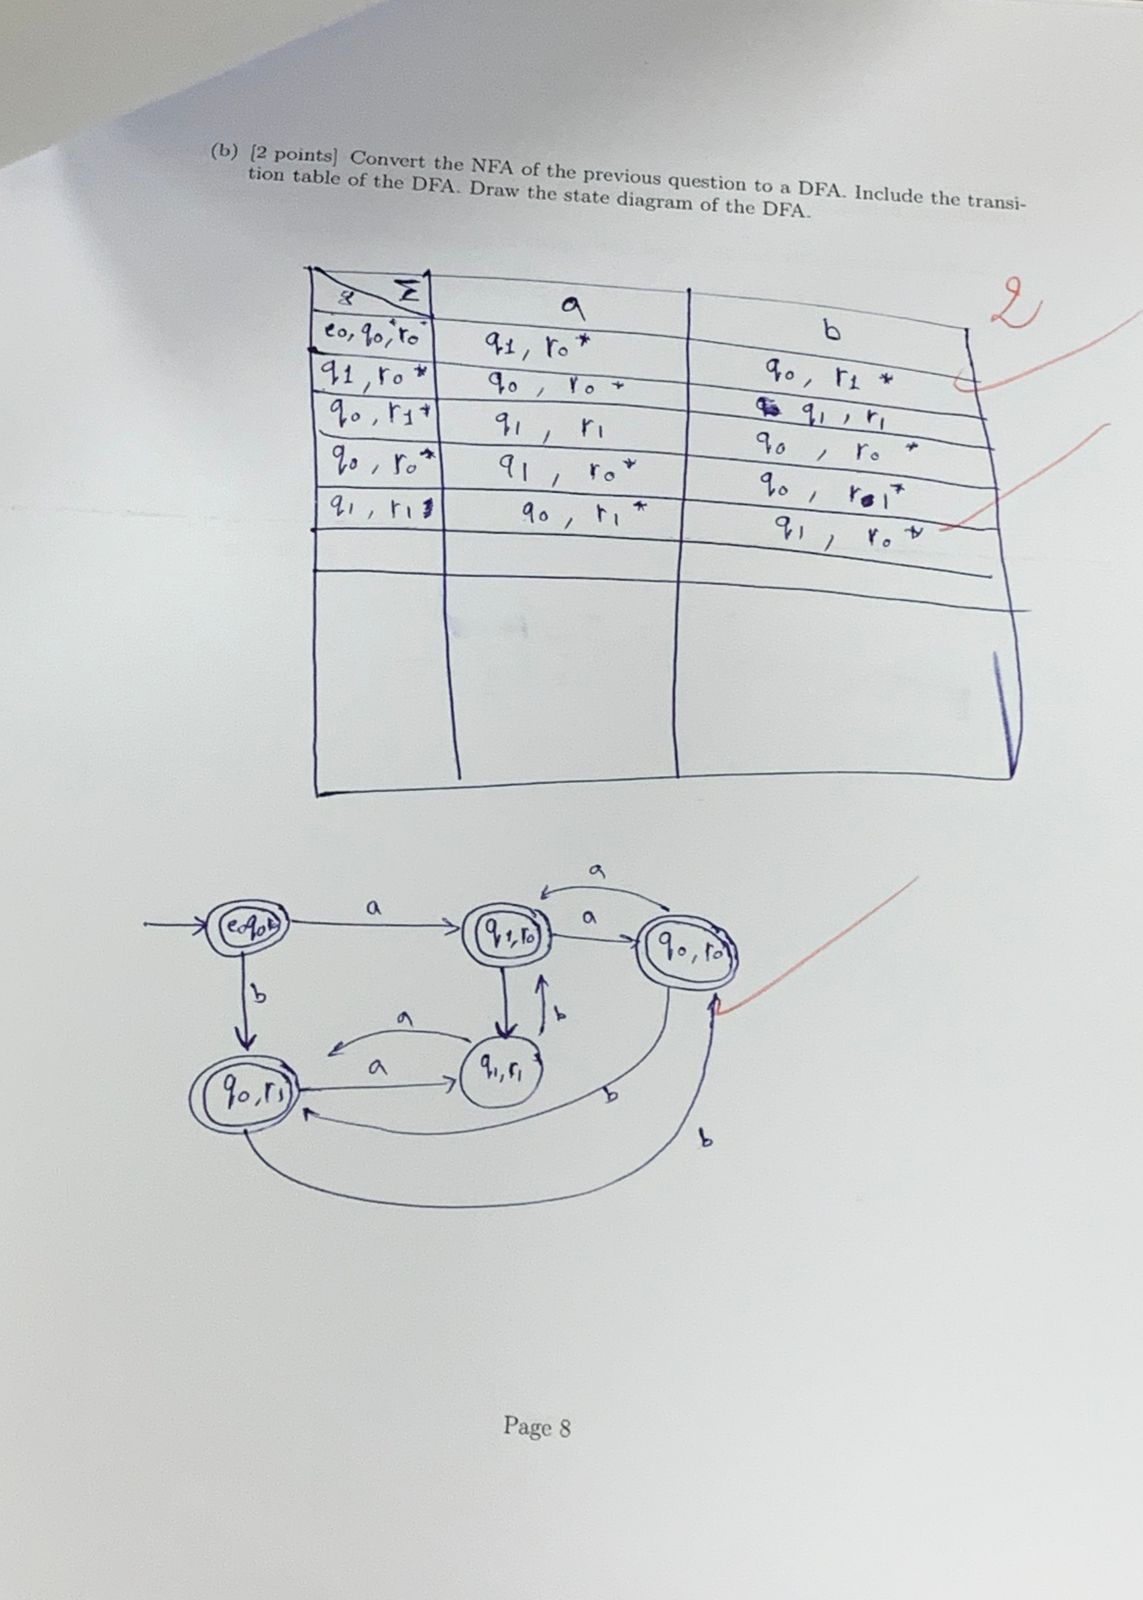 (b) [2 points] Convert the NFA of the previous question to a DFA. Include the transi-
tion table of the DFA. Draw the state diagram of the DFA.
2
Σ a b
e0, q0, r0* q1, r0* q0, r1*
q1, r0* q0, r0* q1, r1
q0, r1* q1, r1 q0, r0*
q0, r0* q1, r0* q0, r1*
q1, r1 q0, r1* q1, r0*
a
a a
q1, r0 q0, r0
b b
a
a
q0, r1 q1, r1
b
b
Page 8